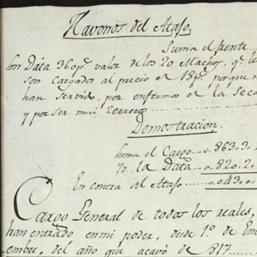 Havonos del Atajo.
Suma el frente
Son Data 360 p.s valor de los 20 Machos, q.e le
son cargados al precio el 18 p.s porque no
han servido, por enfermos el la seca
y por ser mui
Demostracion.
Suma el Cargo 0.863.3
Yd. la Data 0.820.2
En contra al Atajo 0.43.0
Cargo General de todos los reales,
han entrado en mi poder, desde 1.º de Ene
embre, del año que acavó de 817